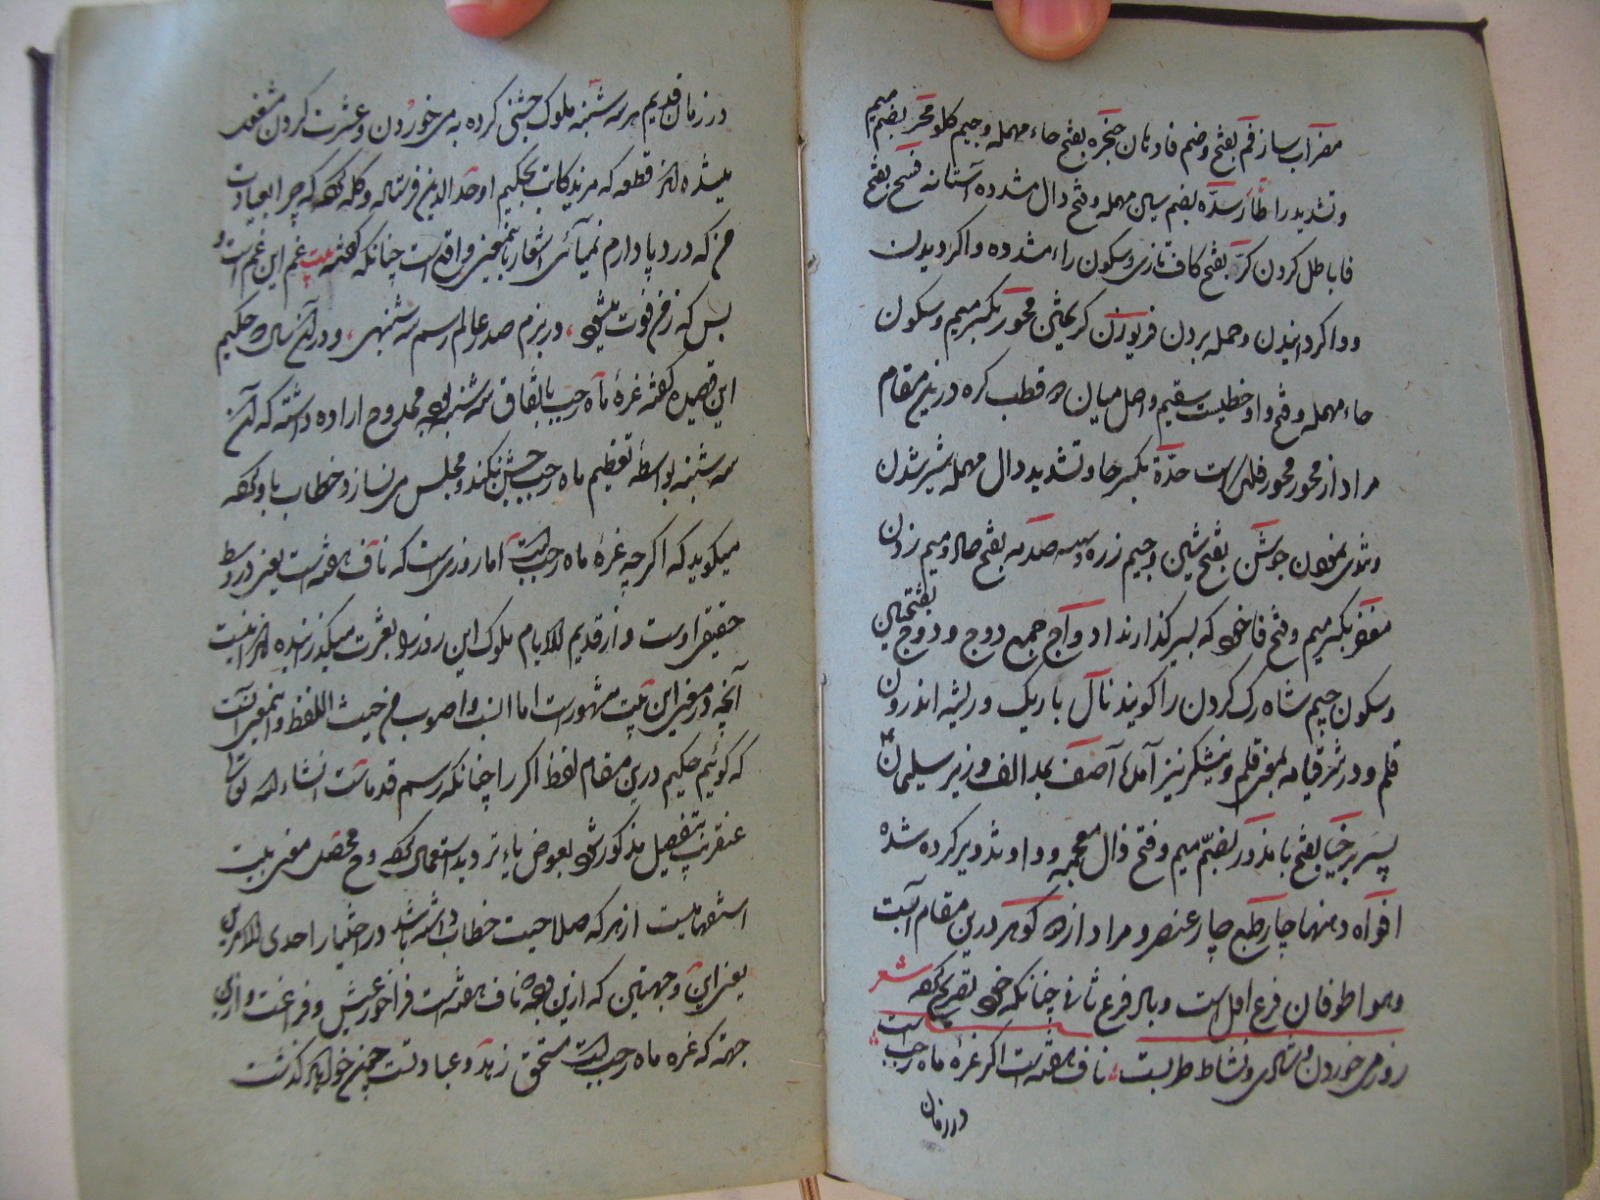 مضراب ساز فم بفتح وضم فا دهان حنجره بفتح حاء مهمله وجیم کلو محرر بضم میم
وتشدید را طاء رسدّه بضم سین مهمله وفتح دال مشدده آستانه فسخ بفتح
فا باطل کردن کرّ بفتح کاف تازی وسکون راء مشدده واکردیدن
وواکردانیدن وحمله بردن فریوزدن کریختن محور بکسر میم وسکون
حاء مهمله وفتح واو خطیست مستقیم واصل میان دو قطب کره درین مقام
مراد از محور محور فلک است حدّة بکسر حا وتشدید دال مهمله تیز شدن
وتندی نمودن جوشن بفتح شین وجیم زره صدمه بفتح صاد ومیم زدن
مغفر بکسر میم وفتح فا خود که بسر گذارند اوداج جمع ودج و ودوج بفتحتین
وسکون جیم شاه رک کردن را کویند نال باریک وریشه اندرون
قلم ودر بمعنی قلم ونیشکر نیز آمده آصف بمد الف وزیر سلیمان
پسر برخیا بفتح با مذور بضم میم وفتح ذال معجمه وواو تدویر کرده شده
افواه دهنها چار طبع چار عنصر ومراد از دو کوهر درین مقام آبست
وهوا طوفان فرع اول است وباد فرع ثانی چنانکه خود تصریح کفته شعر
روز می خوردن وشادی ونشاط وطربست ناف هفته است اکر غرهٔ ماه رجب است
در زمان
در زمان قدیم هر سه شنبه ملوک جشنی کرده به می خوردن وعشرت کردن مشغول
میشده اند قطعه که مرندکانت بحکیم اوحد الدین فرستاده وکله کفته که چرا بعیادت
من که درد پا دارم نمیآئی اشعار باینمعنی واقع است چنانکه کفته بیت غم این غم است و
بس که ز من فوت میشود در بزم صدر عالم رسم سه شنبهی ودر آن سال حکیم
این قصیده کفته غرهٔ ماه رجب باتفاق سه شنبه بوده ممدوح اراده داشته که آن
سه شنبه بواسطهٔ تعظیم ماه رجب جشن نکند ومجلس می نسازد خطاب باو کفته
میکوید که اکر چه غرهٔ ماه رجب است اما روزی است که ناف هفته است یعنی در وسط
حقیقی اوست واز قدیم الایام ملوک این روز را بعشرت میکذرانیده اند اینست
آنچه در معنی این بیت مشهور است اما انسب واصوب من حیث اللفظ والمعنی آنست
که کوئیم حکیم درین مقام لفظ اکر را چنانکه رسم قدماست انشاء الله تعالی
عنقریب بتفصیل مذکور شود بعوض یاء تردید استعمال کرده ومحصل معنی بیت
استفهامیست از هر که صلاحیت خطاب داشته باشد در اختیار احدی الامرین
یعنی این دو جهتین که ازین جهة ناف هفته است فراخور عیش وفراغت وازین
جهة که غره ماه رجب است مستحق زهد وعبادتست چون خواهد کذشت